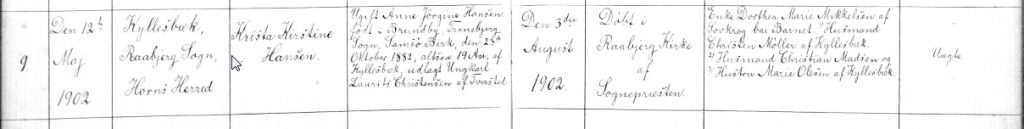 9
Den 12te
Maj
1902
Kyllesbæk,
Raabjerg Sogn,
Horns Herred
Krista Kirstine
Hansen.
Ugift Anne Jörgine Hansen
født i Brundby, Tranebjerg
Sogn, Samsö Birk, den 25de
Oktober 1882, altsaa 19 Aar, af
Kyllesbæk, udlagt Ungkarl
Laurits Christensen af Tversted
Den 3die
August
1902
Döbt i
Raabjerg Kirke
af
Sognepræsten.
Enke Dorthea Marie Mikkelsen af
bar Barnet. 1) Husmand
Christen Möller af Kyllesbæk.
2) Husmand Christian Madsen og
3) Hustru Marie Olesen af Kyllesbæk
Uægte